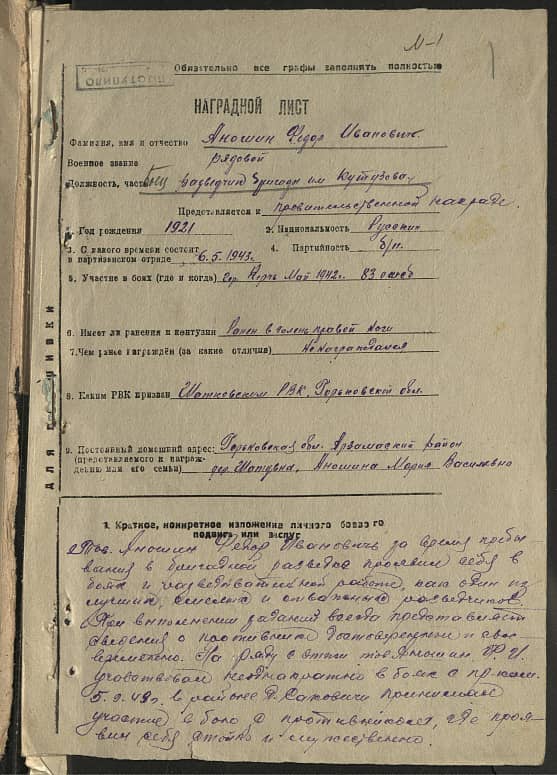 М-1
1
Обязательно все графы заполнять полностью
ПОСТУПИЛО
НАГРАДНОЙ ЛИСТ
Фамилия, имя и отчество Аношин Федор Иванович
Военное звание рядовой
Должность, часть боец разведчик бригады им Кутузова
Представляется к правительственной награде.
1. Год рождения 1921 2. Национальность Русский
3. С какого времени состоит
в партизанском отряде 6.5.1943г. 4. Партийность б/п.
5. Участие в боях (где и когда) гор. Керчь Май 1942г. 83
6. Имеет ли ранения и контузии Ранен в голень правой ноги
7. Чем ранее награждён (за какие отличия) не награждался
8. Каким РВК призван Шатковским РВК, Горьковской обл.
9. Постоянный домашний адрес: Горьковская обл. Арзамаский район
(представляемого к награж-
дению или его семьи) дер. Шатовка, Аношина Мария Васильевна
ДЛЯ ПОДШИВКИ
1. Краткое, конкретное изложение личного боевого
подвига или заслуг
Тов. Аношин Федор Иванович за время пребы
вания в бригадной разведке проявил себя в
боях и разведывательной работе, как один из
лучших, смелых и отважных разведчиков.
При выполнении заданий всегда предоставляет
сведения о противнике достоверными и свое
временно. На ряду с этим тов. Аношин Ф. И.
участвовал неоднократно в боях с пр-ком.
5.9.43г. в районе д. Саковичи принимал
участие в бою с противником, где проя-
вил себя стойко и мужественно.